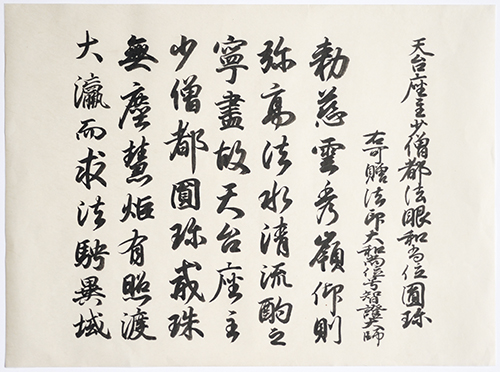 天台座主少僧都法眼和尚位圓珍
右可贈法印大和尚位号智證大師
勅慈雲秀嶺仰則
弥高法水清流酌之
寧盡故天台座主
少僧都圓珍戒珠
無塵慧炬有照渡
大瀛而求法騁異域